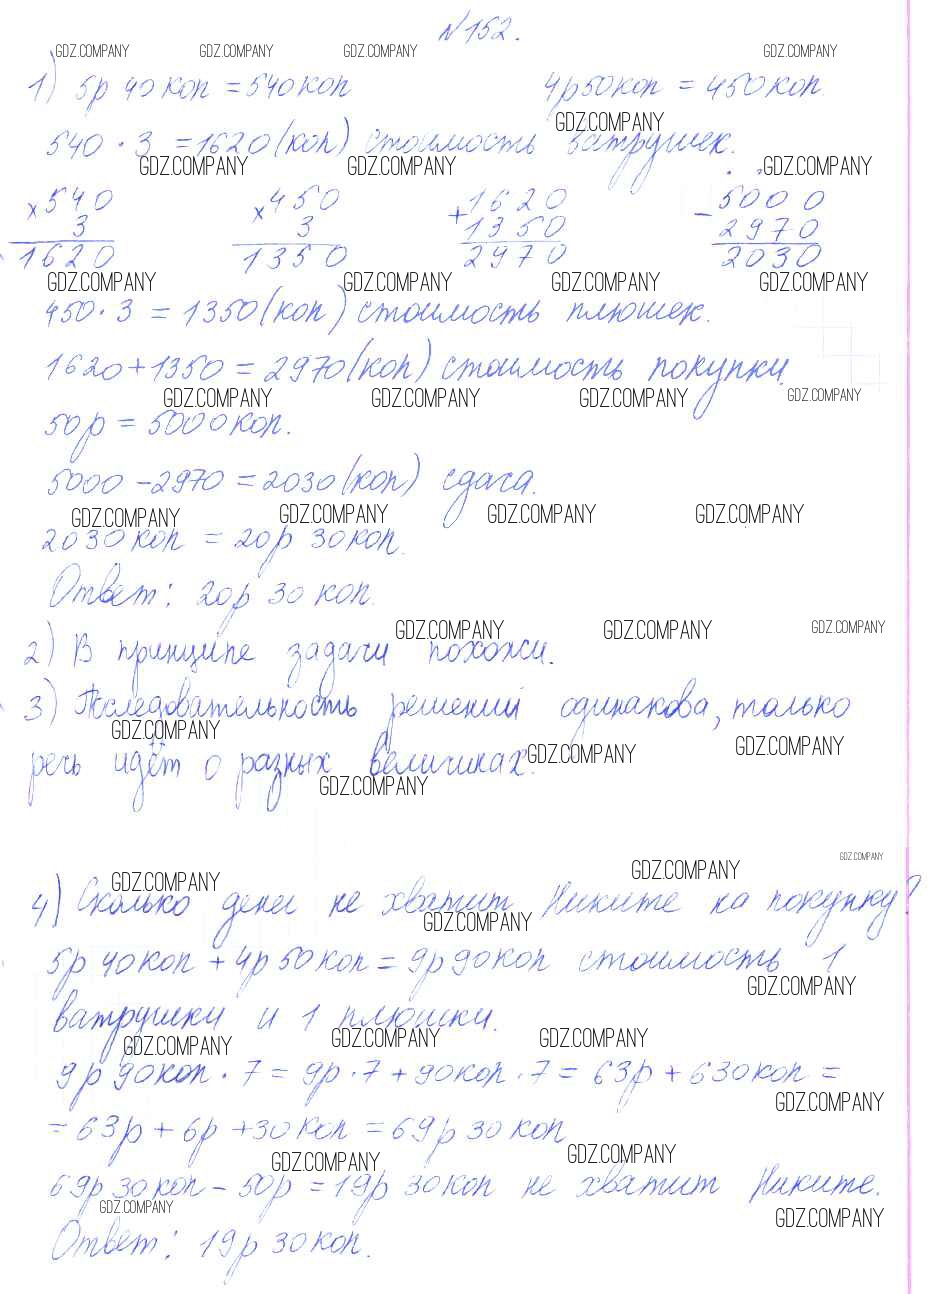 №152.
GDZ.COMPANY GDZ.COMPANY GDZ.COMPANY GDZ.COMPANY
1) 5р 40 коп = 540 коп 4р 50 коп = 450 коп.
GDZ.COMPANY
540 · 3 = 1620 (коп) стоимость ватрушек.
GDZ.COMPANY GDZ.COMPANY GDZ.COMPANY
×540 ×450 +1620 -5000
3 3 1350 2970
1620 1350 2970 2030
GDZ.COMPANY GDZ.COMPANY GDZ.COMPANY GDZ.COMPANY
450 · 3 = 1350 (коп) стоимость плюшек.
1620 + 1350 = 2970 (коп) стоимость покупки.
GDZ.COMPANY GDZ.COMPANY GDZ.COMPANY GDZ.COMPANY
50р = 5000 коп.
5000 - 2970 = 2030 (коп) сдача.
GDZ.COMPANY GDZ.COMPANY GDZ.COMPANY GDZ.COMPANY
2030 коп = 20р 30 коп.
Ответ: 20р 30 коп.
GDZ.COMPANY GDZ.COMPANY GDZ.COMPANY
2) В принципе задачи похожи.
3) Последовательность решений одинакова, только
GDZ.COMPANY GDZ.COMPANY GDZ.COMPANY
речь идёт о разных величинах.
GDZ.COMPANY
GDZ.COMPANY GDZ.COMPANY GDZ.COMPANY
4) Сколько денег не хватит Никите на покупку?
GDZ.COMPANY
5р 40 коп + 4р 50 коп = 9р 90 коп стоимость 1
GDZ.COMPANY
ватрушки и 1 плюшки.
GDZ.COMPANY GDZ.COMPANY GDZ.COMPANY
9р 90 коп · 7 = 9р · 7 + 90 коп · 7 = 63р + 630 коп =
GDZ.COMPANY
= 63р + 6р + 30 коп = 69р 30 коп
GDZ.COMPANY GDZ.COMPANY
69р 30 коп - 50р = 19р 30 коп не хватит Никите.
GDZ.COMPANY GDZ.COMPANY
Ответ: 19р 30 коп.